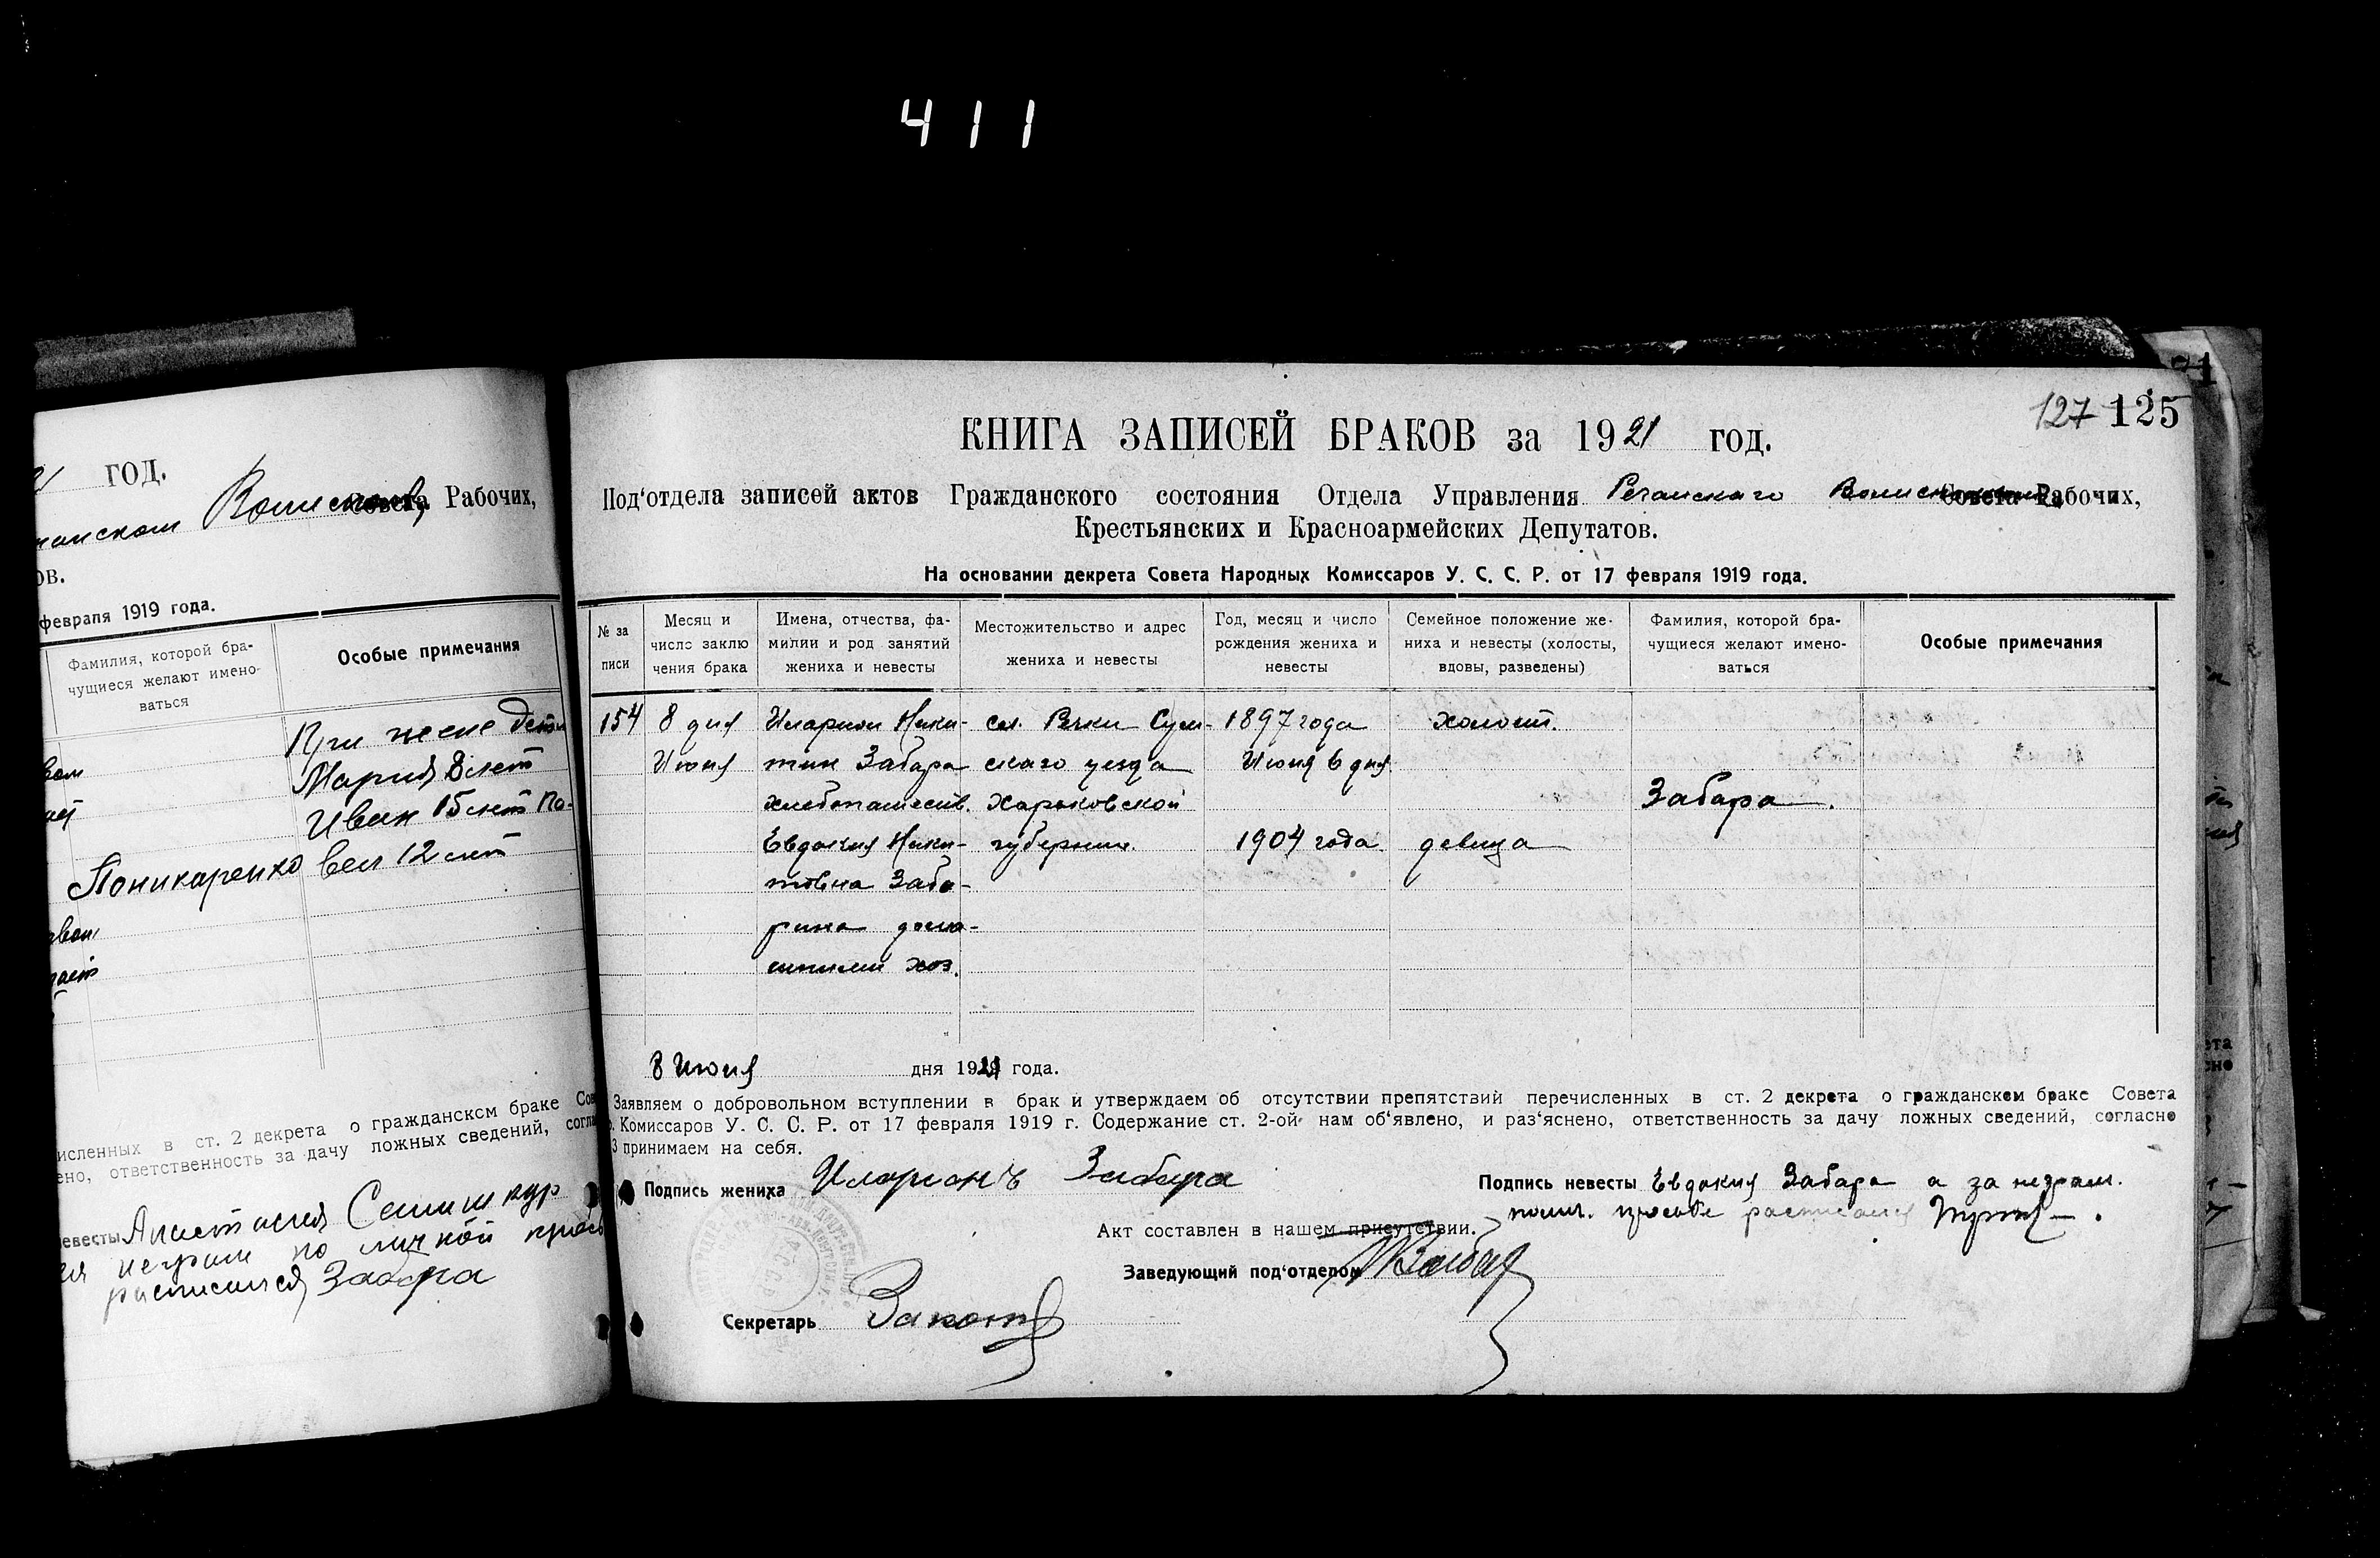 411
21 год.
Волисполк, Рабочих,
ов.
февраля 1919 года.
Фамилия, которой бра-
чущиеся желают имено-
ваться
Особые примечания
При жене дети
Мария 8 лет
Иван 15 лет Па-
Поникаренко вел 12 лет
исленных в ст. 2 декрета о гражданском браке Сов
ено, ответственность за дачу ложных сведений, согла
невесты Анастасия
неграм по личной прось
расписался Забара
127 125
КНИГА ЗАПИСЕЙ БРАКОВ за 1921 год.
Под'отдела записей актов Гражданского состояния Отдела Управления Речанскаго Волисполкома Совета Рабочих,
Крестьянских и Красноармейских Депутатов.
На основании декрета Совета Народных Комиссаров У. С. С. Р. от 17 февраля 1919 года.
№ за
писи
Месяц и
число заклю
чения брака
Имена, отчества, фа-
милии и род занятий
жениха и невесты
Местожительство и адрес
жениха и невесты
Год, месяц и число
рождения жениха и
невесты
Семейное положение же-
ниха и невесты (холосты,
вдовы, разведены)
Фамилия, которой бра-
чущиеся желают имено-
ваться
Особые примечания
154 8 дня Иларион Ники- сл. Речки Сум- 1897 года холост.
Июня тин Забара скаго уезда Июня 6 дня
хлебопашеств. Харьковской Забара.
Евдокия Ники- губернии. 1904 года девица
товна Заба-
рина дома-
шними хоз.
8 Июня дня 1921 года.
Заявляем о добровольном вступлении в брак и утверждаем об отсутствии препятствий перечисленных в ст. 2 декрета о гражданском браке Совета
. Комиссаров У. С. С. Р. от 17 февраля 1919 г. Содержание ст. 2-ой нам об'явлено, и раз'яснено, ответственность за дачу ложных сведений, согласно
3 принимаем на себя.
Подпись жениха Иларионъ Забара
Подпись невесты Евдокия Забара а за неграм.
личн. просьбе расписался
Акт составлен в нашем присутствии.
Заведующий под'отделом
Секретарь